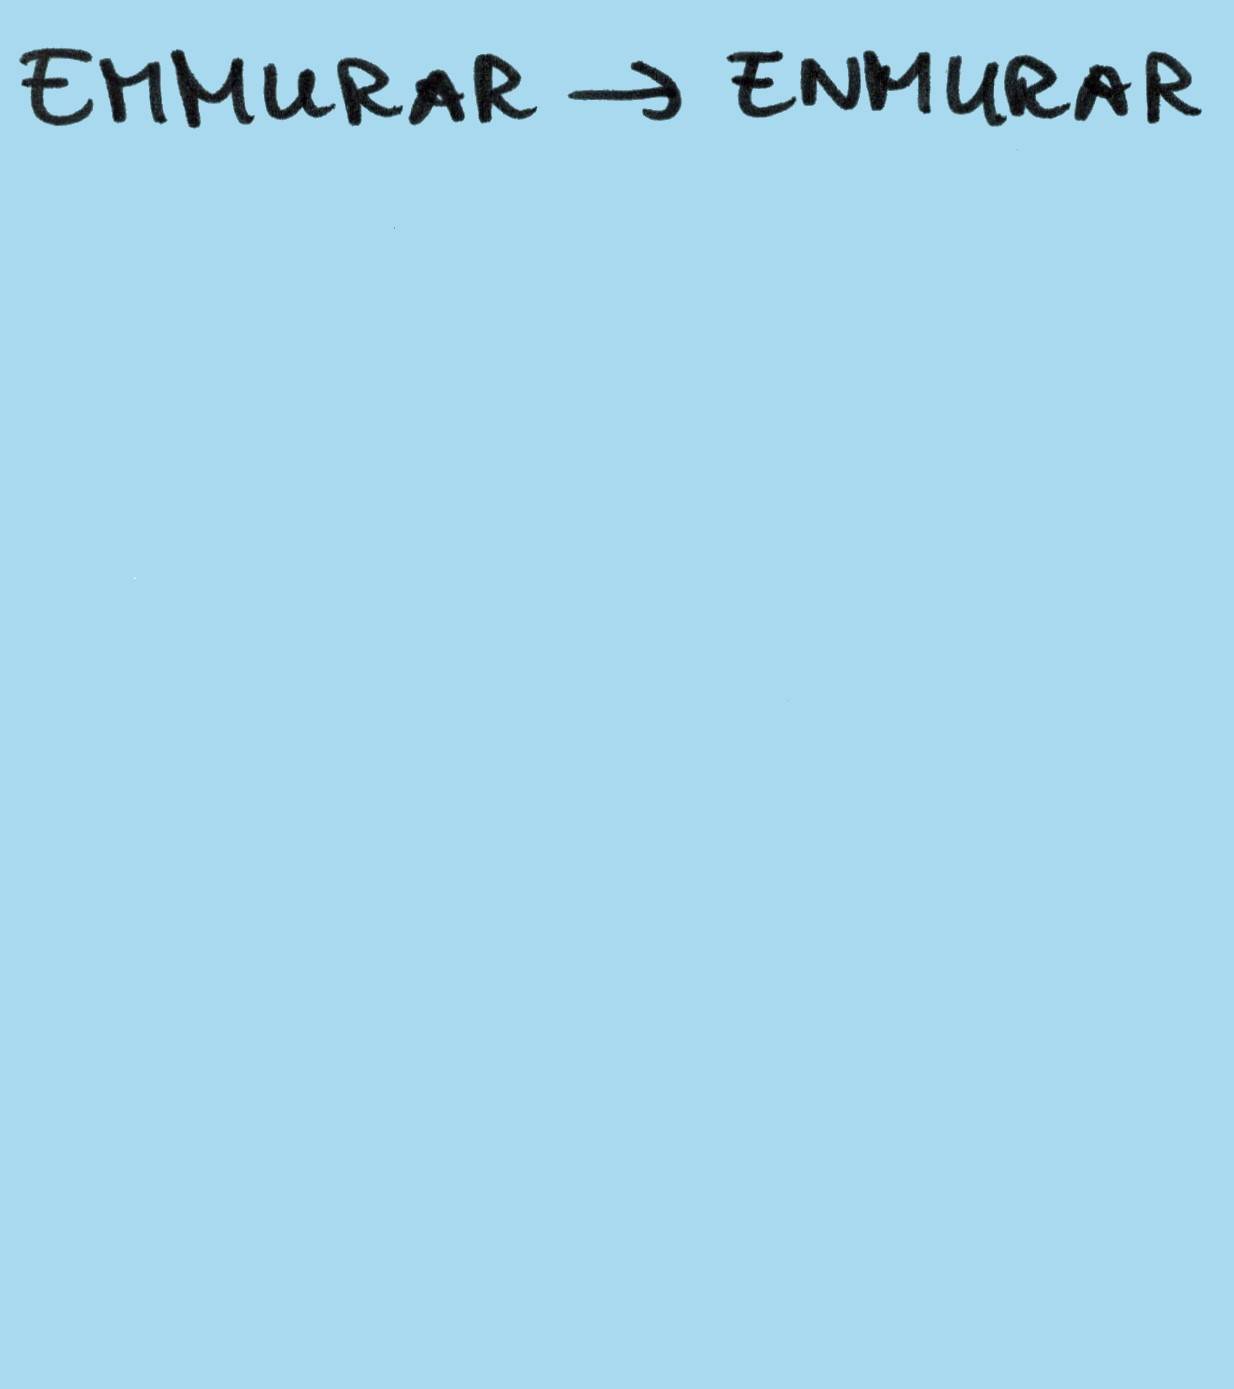 EMMURAR → ENMURAR